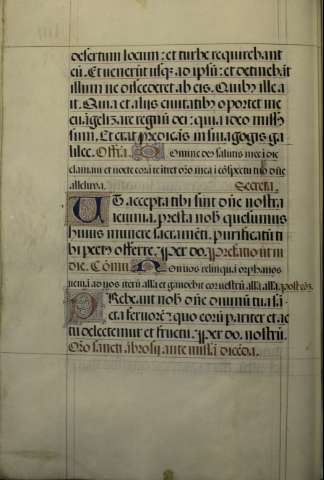 desertum locum: et turbe requirebant
eū. Et venerūt usq; ad ipsū: et detinebāt
illum ne discederet ab eis. Quibus ille a
it. Quia et alijs civitatibus oportet me
euāgelizare regnū dei: quia ideo missus
sum. Et erat predicās in sinagogis ga
lilee. Offra. Domine deus salutis mee i die
clamavi et nocte corā te itret orō mea i cōspectu tuo dñe
alleluya. Secreta.
UT accepta tibi sint dñe nostra
ieiunia. presta nobis quesumus
huius munere sacramēti. purificatū ti
bi pectus offerre. Per do. Prefatio ut in
die. Cōmunio Non vos relinquā orphanos
veniā ad vos iterū alla et gaudebit cor vestrū alla alla. post cō.
PRebeant nobis dñe divinū tua sā
cta fervorē: quo eorū pariter et ac
tu delectemur et fructu. Per do. nostrū.
Orō sancti ābrosij ante missā dicēda.